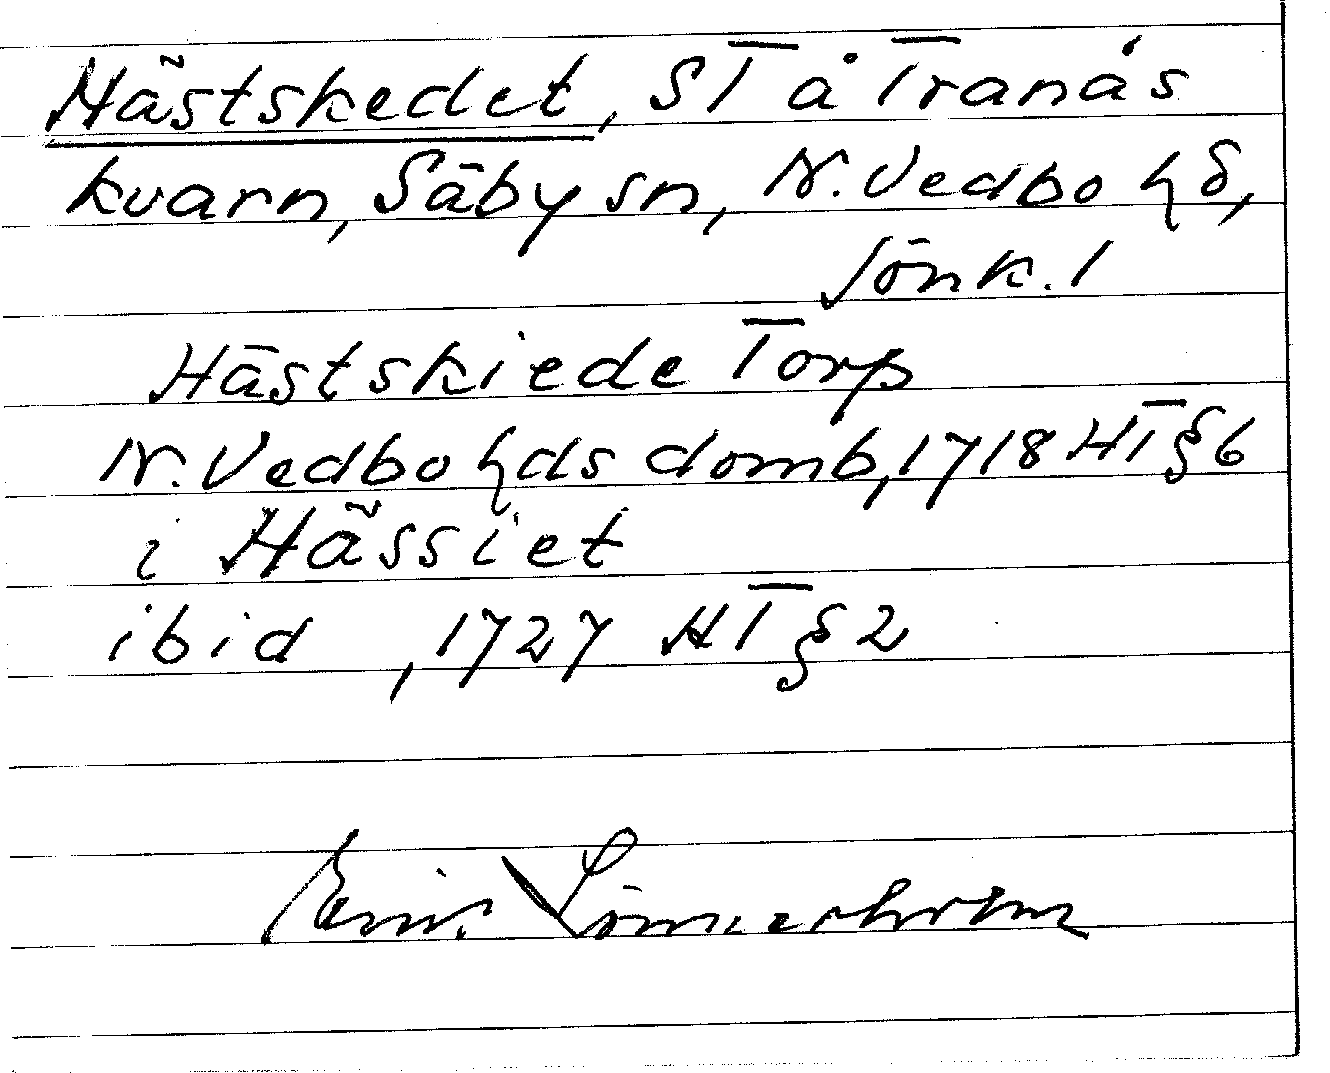 Hästskedet, ST å Tranås
kvarn, Säby sn, N. Vedbo hd,
Jönk. l
Hästskiede Torp
N. Vedbo hds domb, 1718 HT § 6
i Hässiet
ibid , 1727 HT § 2